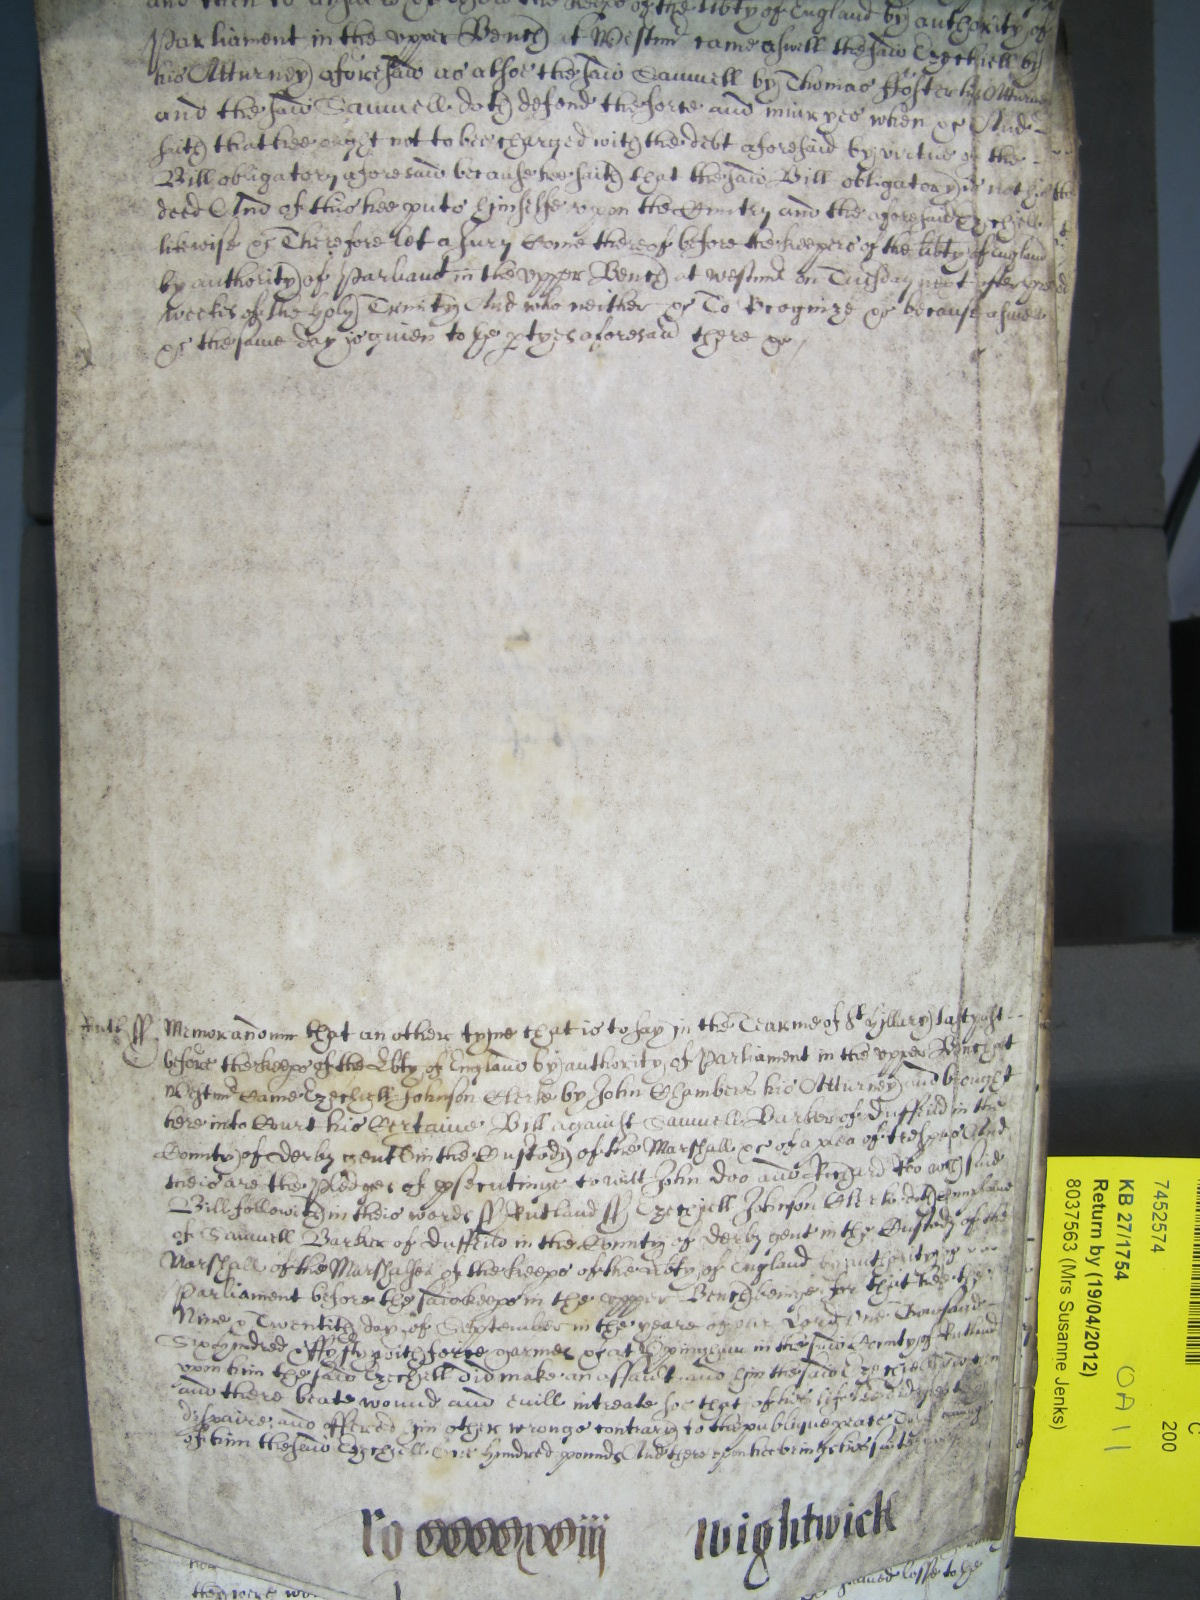 and then to answere before the keeps of the libty of England by authority of
Parliament in the upper Bench at Westm came aswell the said Ezechiell by
his Atturney aforesaid as alsoe the said Samuell by Thomas ffoster his Atturney
and the said Samuell doth defend the force and iniuryes when &c And
saith that hee ought not to bee charged with the debt aforesaid by virtue of the
Bill obligatory aforesaid because hee saith that the said Bill obligatory is not his
deed And of this hee puts himselfe upon the Cuntry and the aforesaid Ezechiell
likewise &c Therefore let a Jury Come thereof before the keepers of the libty of England
by authority of Parliamt in the upper Bench at westm on Tuesday next after
weekes of the holy Trinity And who neither &c To Recognize &c because aswell
&c the same day is given to the ptyes aforesaid there &c
Rutl ss Memorandum that an other tyme that is to say in the Tearme of St Hillary last past
before the keeps of the Libty of England by authority of Parliament in the upper Bench at
Westm Came Ezechiell Johnson Clerke by John Chambers his Atturney and brought
here into Court his Certaine Bill against Samuell Barker of Duffeild in the
County of Derby gent in the Custody of the Marshall &c of a plea of trespas And
theis are the Pledges of psecutinge to witt John Doo and Richard Roo wch said
Bill followeth in theis words ss Rutland ss Ezechiell Johnson Clerke doth Complaine
of Samuell Barker of Duffeild in the County of Derby gent in the Custody of the
Marshall of the Marshalsea of the keeps of the libty of England by authority of
Parliament before the said keeps in the upper Bench beinge for that hee the
Nine & Twentith day of September in the yeare of our Lord One Thousand
Six hundred & ffifty with force & armes &c at in the said County of Rutland
upon him the said Ezechiell did make an assault and him the said Ezechiell
and there beate wound and evill intreate soe that of his life hee did
dispaire and offered him other wrongs contrary to the publique peace
of him the said Ezechiell One hundred pounds And thereupon hee bringeth his suite
Ro xviij Wightwick
7452574
KB 27/1754
Return by (19/04/2012)
8037563 (Mrs Susanne Jenks)
OA 11
C
200